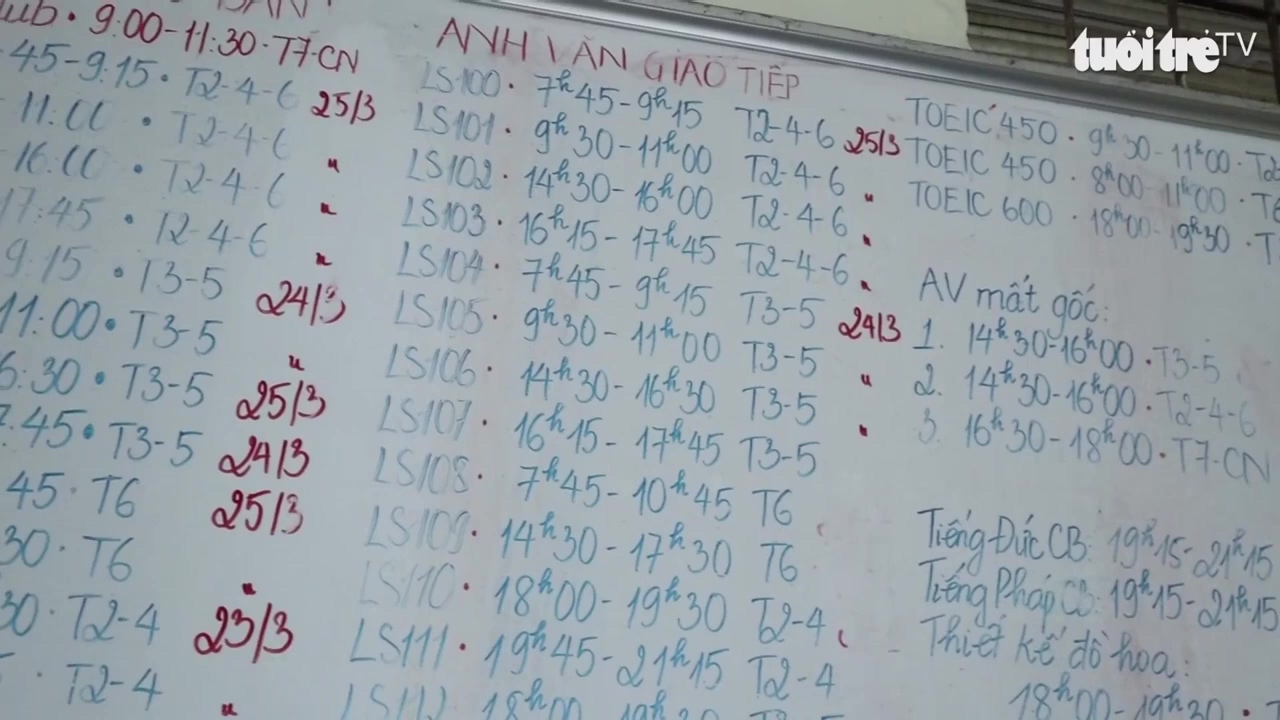 tuổi trẻ TV
9:00-11:30 · T7-CN
45-9:15 · T2-4-6 25/3
· T2-4-6 "
· T2-4-6 "
17:45 · T2-4-6 "
9:15 · T3-5 24/3
11:00 · T3-5 "
6:30 · T3-5 25/3
45 · T3-5 24/3
45 · T6 25/3
30 · T6 "
30 · T2-4 23/3
· T2-4 "
ANH VĂN GIAO TIẾP
LS100 · 7h45-9h15 T2-4-6 25/3
LS101 · 9h30-11h00 T2-4-6 "
LS102 · 14h30-16h00 T2-4-6 "
LS103 · 16h15-17h45 T2-4-6 "
LS104 · 7h45-9h15 T3-5 24/3
LS105 · 9h30-11h00 T3-5 "
LS106 · 14h30-16h30 T3-5 "
LS107 · 16h15-17h45 T3-5
LS108 · 7h45-10h45 T6
LS109 · 14h30-17h30 T6
LS110 · 18h00-19h30 T2-4
LS111 · 19h45-21h15 T2-4
LS112 18h00 19h30
TOEIC 450 · 9h30-11h00 ·
TOEIC 450 · 8h00-11h00 ·
TOEIC 600 · 18h00-19h30 ·
AV mất gốc:
1. 14h30-16h00 · T3-5
2. 14h30-16h00 · T2-4-6
3. 16h30-18h00 · T7-CN
Tiếng Đức CB: 19h15-21h15
Tiếng Pháp CB: 19h15-21h15
Thiết kế đồ họa:
18h00-19h30 ·